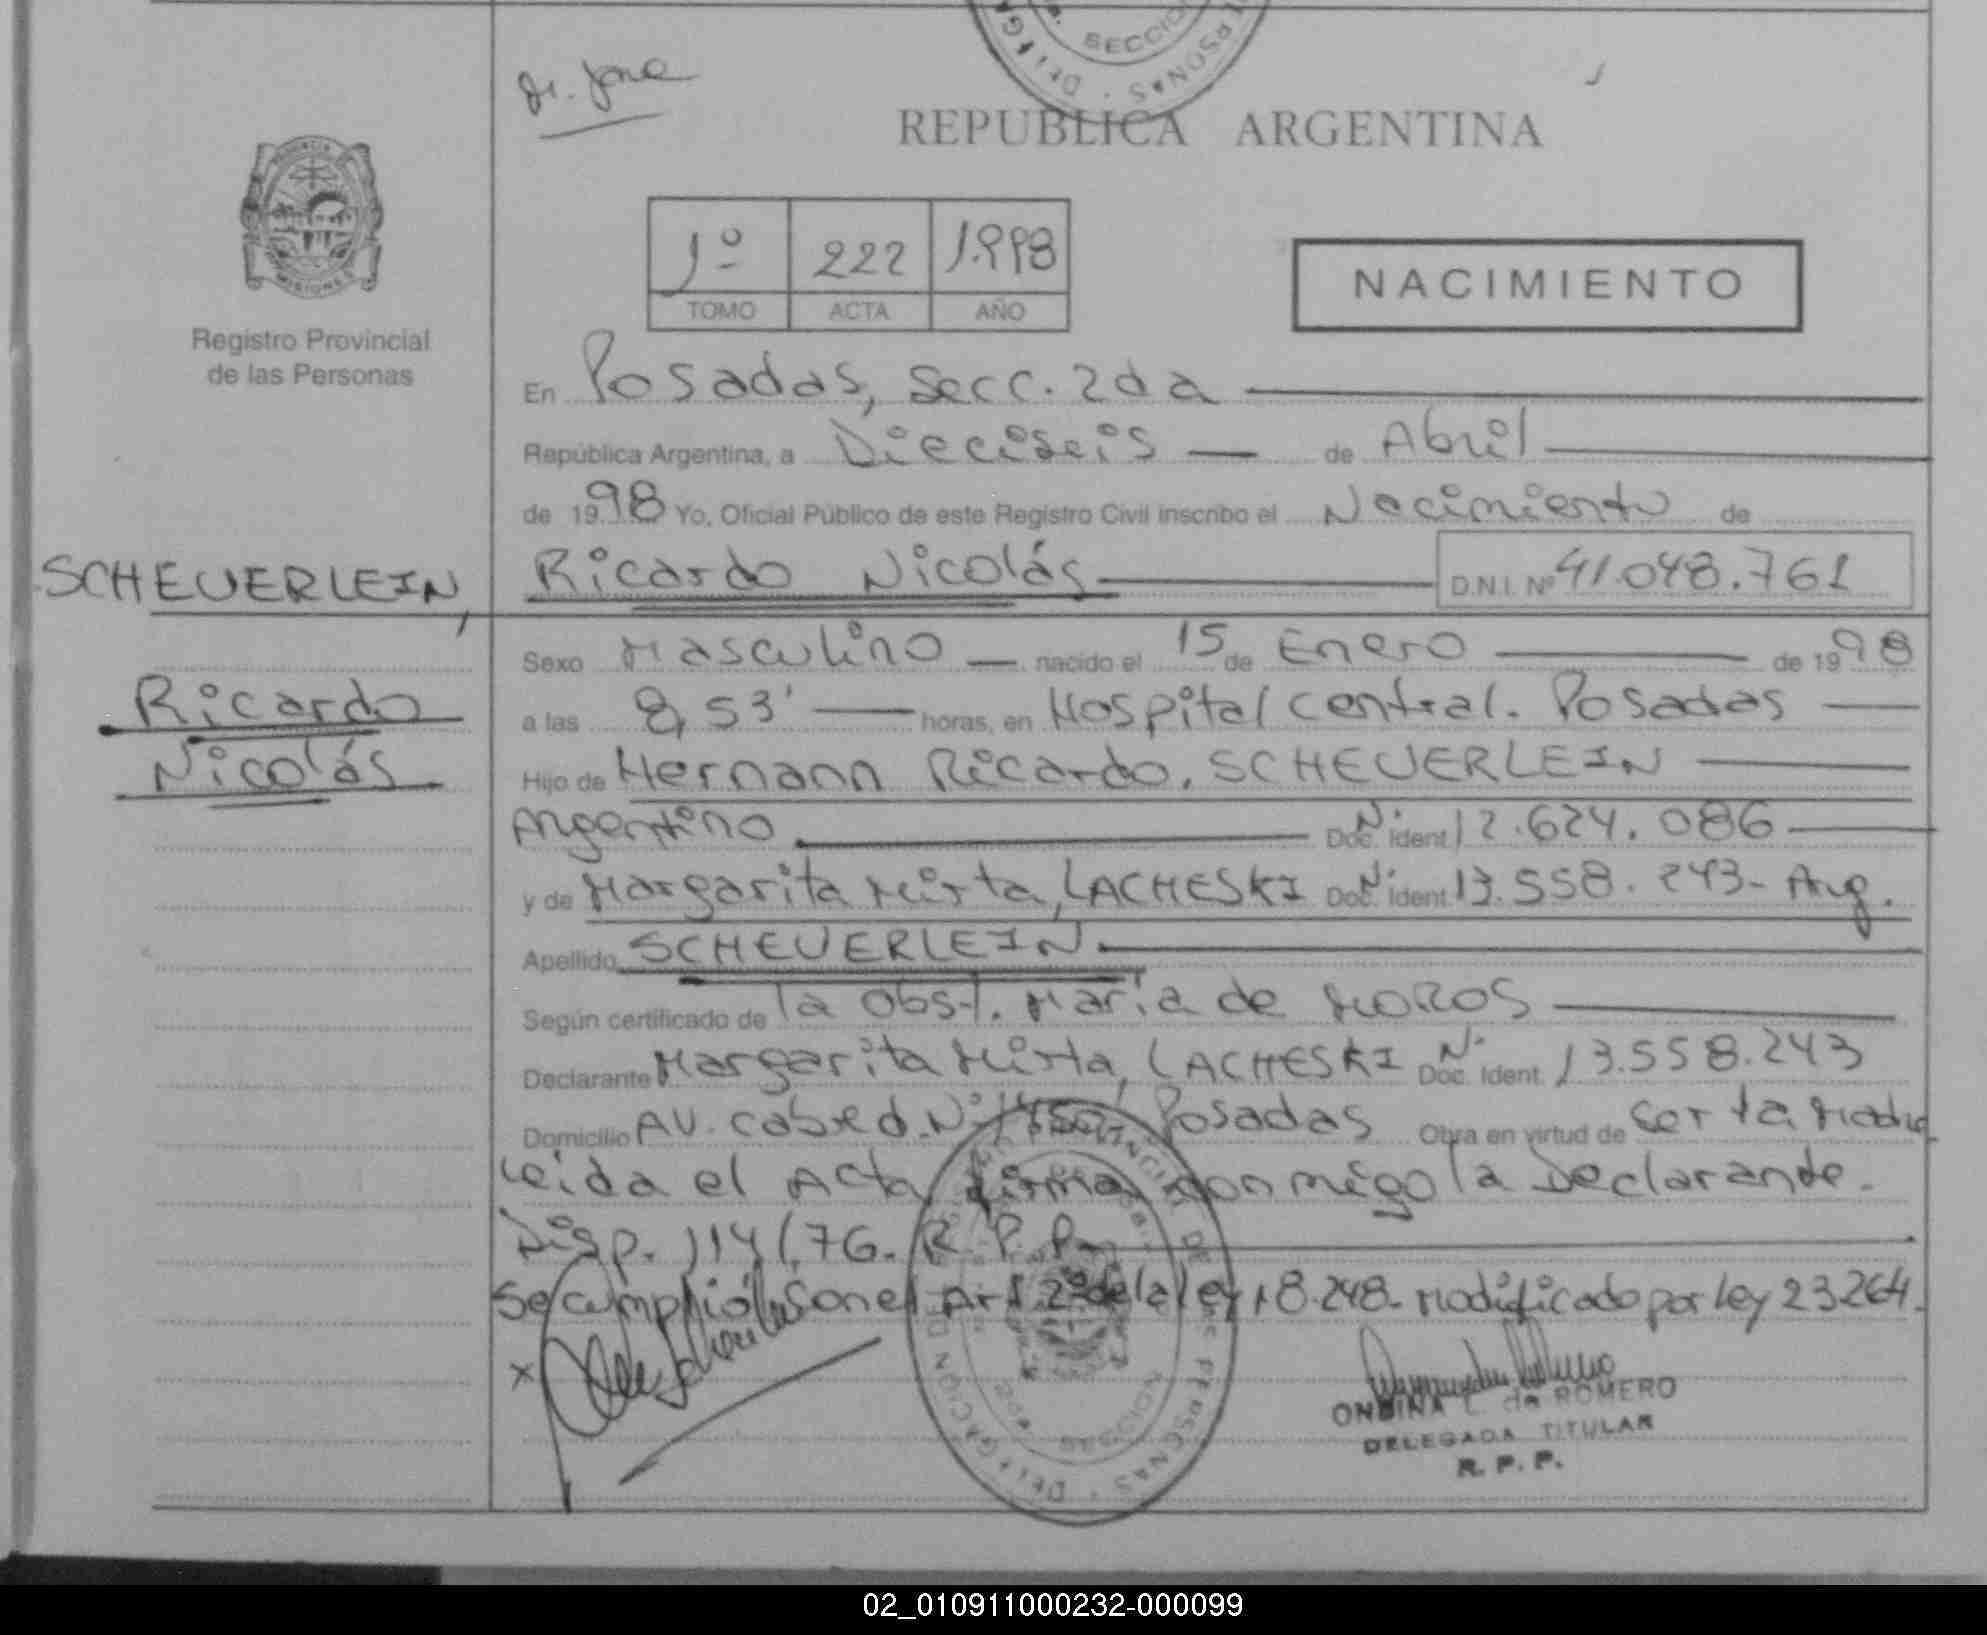 SECCION
REPUBLICA ARGENTINA
PROVINCIA
MISIONES
1º 222 1.998
TOMO ACTA AÑO
NACIMIENTO
Registro Provincial
de las Personas
En Posadas, Secc. 2da
República Argentina, a Dieciseis de Abril
de 1998 Yo, Oficial Público de este Registro Civil inscribo el Nacimiento de
SCHEUERLEIN, Ricardo Nicolás D.N.I. Nº 41.048.761
Ricardo
Nicolás
Sexo Masculino nacido el 15 de Enero de 1998
a las 8,53' horas, en Hospital Central. Posadas
Hijo de Hermann Ricardo, SCHEUERLEIN
Argentino Doc. Ident. N· 12.624.086
y de Margarita Mirta, LACHESKI Doc. Ident. N· 13.558.243- Arg.
Apellido SCHEUERLEIN.
Según certificado de la Obst. Maria de MOROS
Declarante Margarita Mirta, LACHESKI Doc. Ident. N· 13.558.243
Domicilio AV. Cabred. Nº Posadas Obra en virtud de ser la Madre
Leida el Acta, firma conmigo la Declarante.
Disp. 114/76. R.P.P.
Se cumplió con el Art 2º de la ley 18.248- Modificado por Ley 23264.
x
ONDINA L. de ROMERO
DELEGADA TITULAR
R. P. P.
02_010911000232-000099